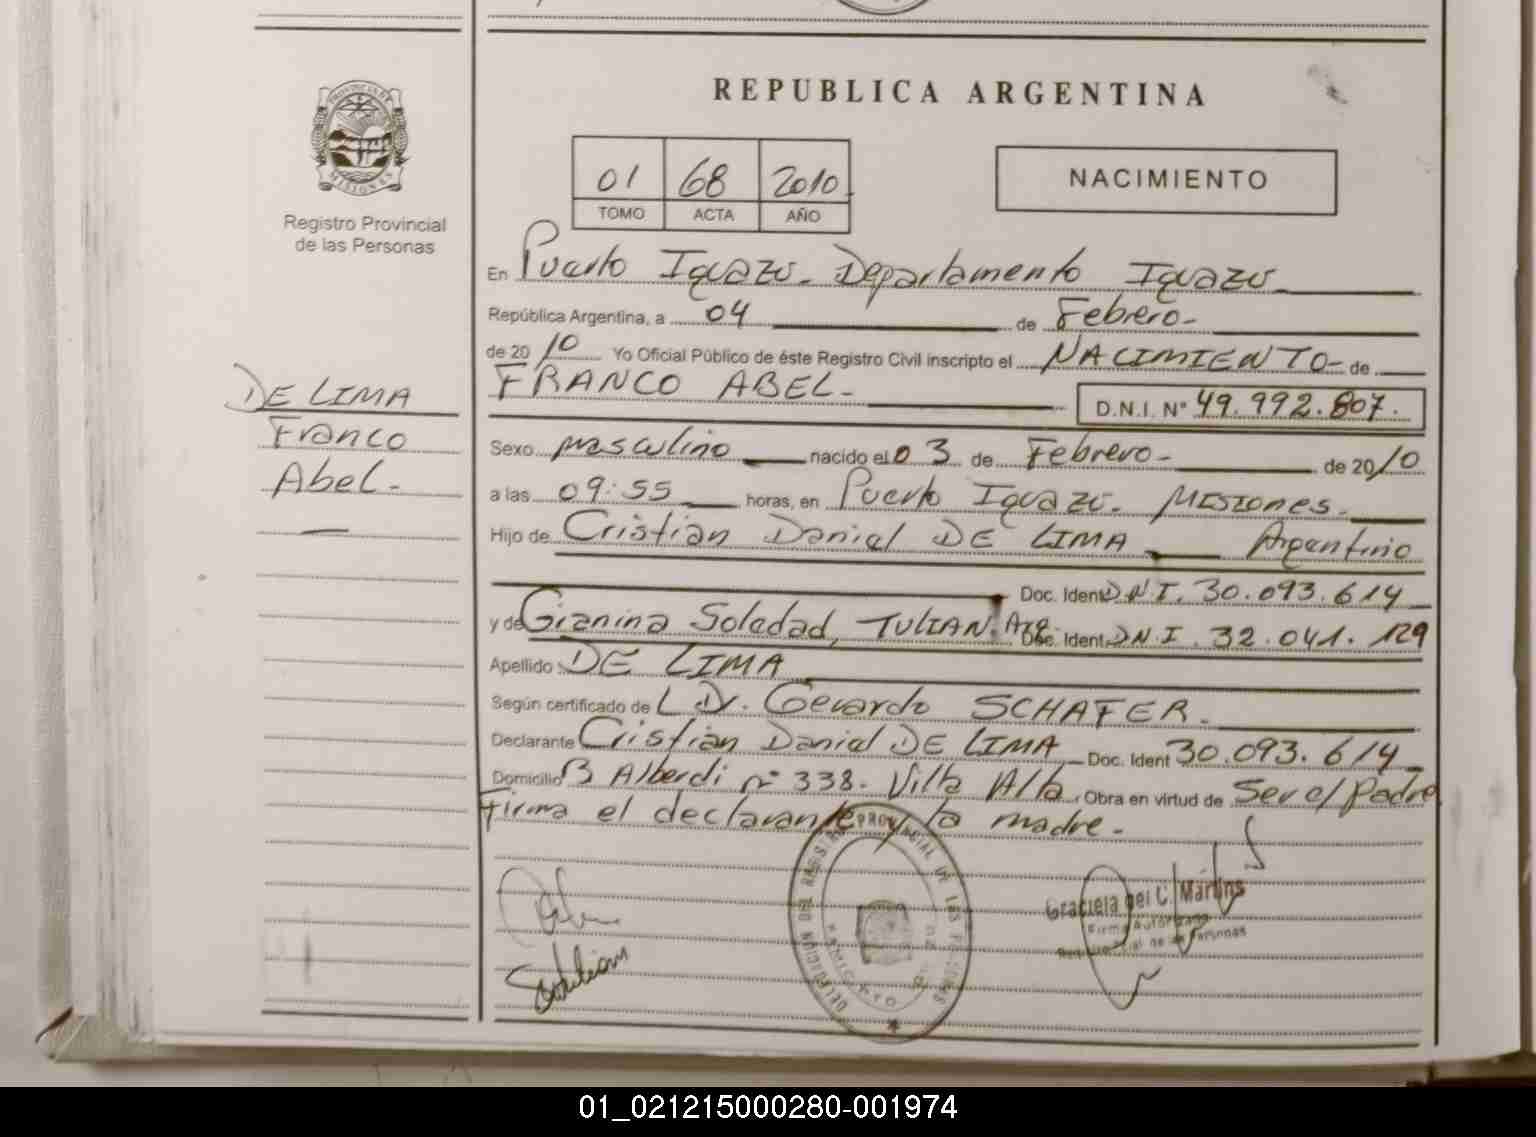 PROVINCIA DE
MISIONES
Registro Provincial
de las Personas
DE LIMA
Franco
Abel.-
REPUBLICA ARGENTINA
01 68 2010
TOMO ACTA AÑO
NACIMIENTO
En Puerto Iguazú - Departamento Iguazú
República Argentina, a 04 de Febrero-
de 2010 Yo Oficial Público de éste Registro Civil inscripto el NACIMIENTO- de
FRANCO ABEL.- D.N.I. N° 49.992.807.
Sexo masculino nacido el 03 de Febrero- de 2010
a las 09:55 horas, en Puerto Iguazú. Misiones.
Hijo de Cristian Daniel DE LIMA Argentino
Doc. Ident D.N.I. 30.093.614
y de Gianina Soledad, TULIAN. Arg. Doc. Ident D.N.I. 32.041.129
Apellido DE LIMA
Según certificado de L Dr. Gerardo SCHAFER.
Declarante Cristian Daniel DE LIMA Doc. Ident 30.093.614
Domicilio B Alberdi n° 338. Villa Alta. Obra en virtud de Ser el Padre
Firma el declarante y la madre.-
Graciela del C. Martins
Firma Autorizada
01_021215000280-001974